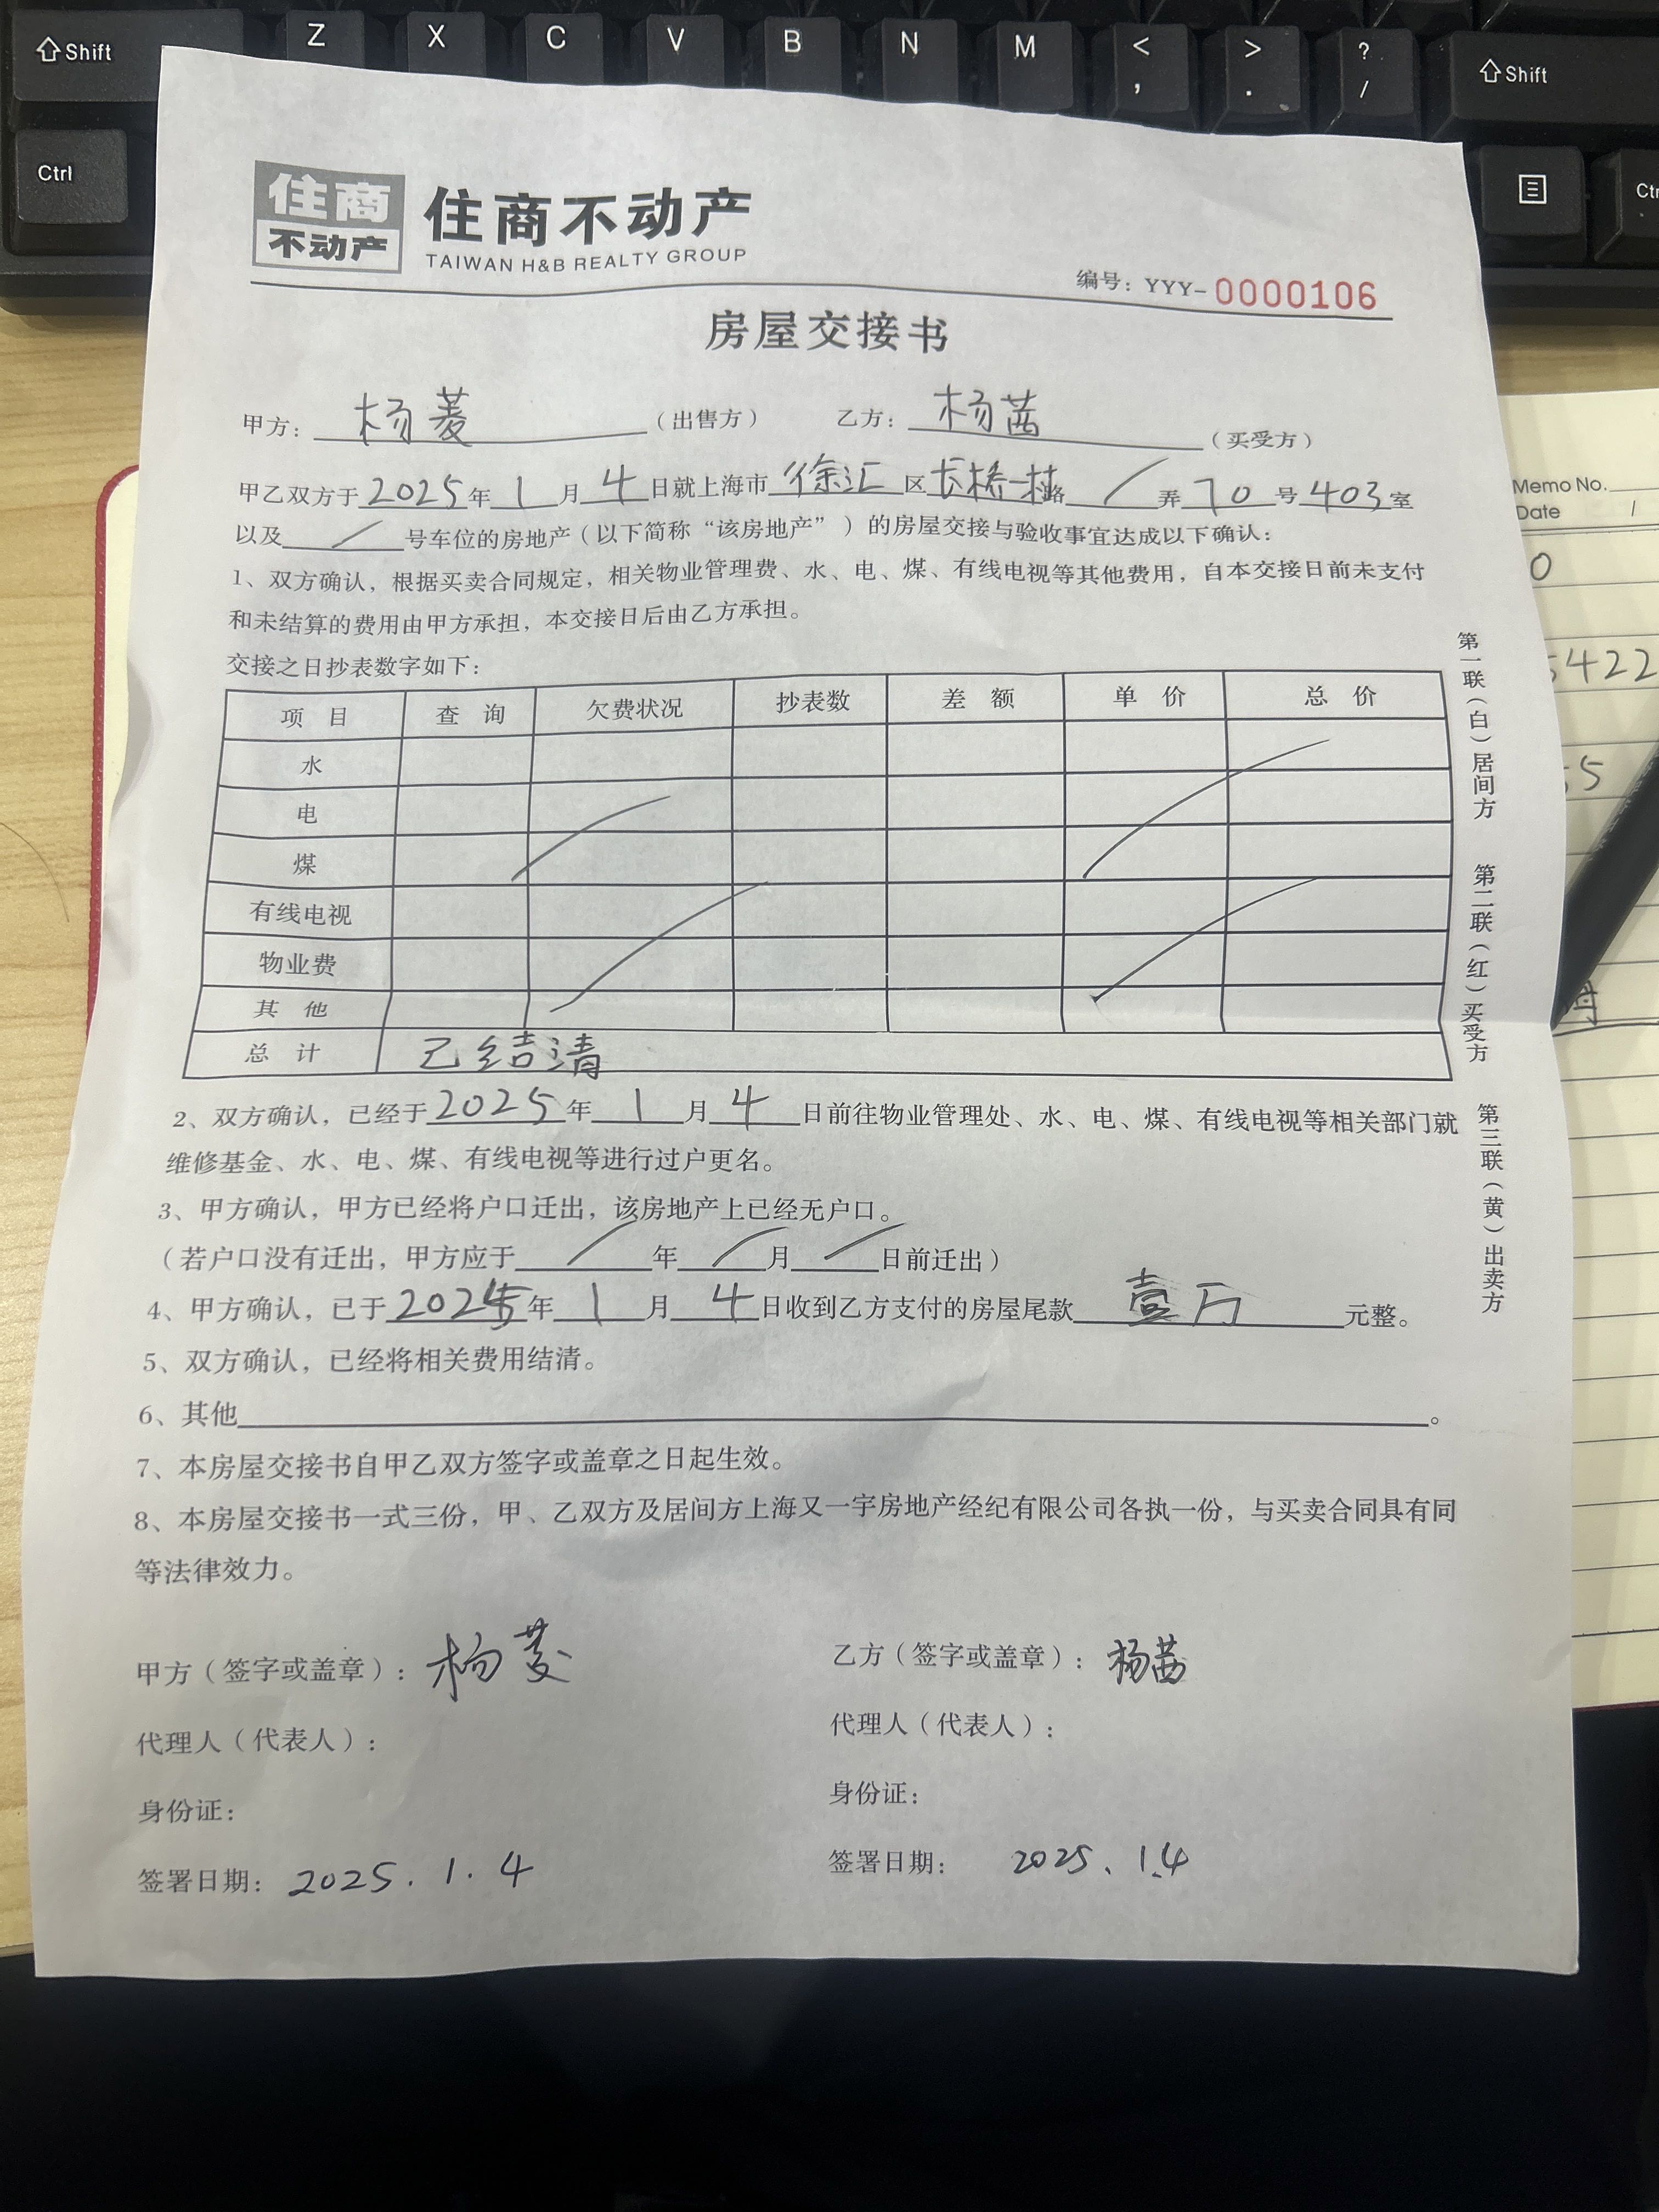 Shift
Z
X
C
V
B
N
M
<
,
>
.
?
/
Shift
Ctrl
住商
不动产
住商不动产
TAIWAN H&B REALTY GROUP
编号：YYY-0000106
房屋交接书
甲方：杨菱（出售方） 乙方：杨茜（买受方）
甲乙双方于2025年1月4日就上海市徐汇区长桥一村路/弄70号403室
以及/号车位的房地产（以下简称“该房地产”）的房屋交接与验收事宜达成以下确认：
1、双方确认，根据买卖合同规定，相关物业管理费、水、电、煤、有线电视等其他费用，自本交接日前未支付
和未结算的费用由甲方承担，本交接日后由乙方承担。
交接之日抄表数字如下：
项目 查询 欠费状况 抄表数 差额 单价 总价
水
电
煤
有线电视
物业费
其他
总计 已结清
2、双方确认，已经于2025年1月4日前往物业管理处、水、电、煤、有线电视等相关部门就
维修基金、水、电、煤、有线电视等进行过户更名。
3、甲方确认，甲方已经将户口迁出，该房地产上已经无户口。
（若户口没有迁出，甲方应于/年/月/日前迁出）
4、甲方确认，已于2025年1月4日收到乙方支付的房屋尾款壹万元整。
5、双方确认，已经将相关费用结清。
6、其他。
7、本房屋交接书自甲乙双方签字或盖章之日起生效。
8、本房屋交接书一式三份，甲、乙双方及居间方上海又一宇房地产经纪有限公司各执一份，与买卖合同具有同
等法律效力。
甲方（签字或盖章）：杨菱
代理人（代表人）：
身份证：
签署日期：2025.1.4
乙方（签字或盖章）：杨茜
代理人（代表人）：
身份证：
签署日期：2025.1.4
第一联（白）居间方 第二联（红）买受方 第三联（黄）出卖方
Memo No.
Date /
0
5422
55